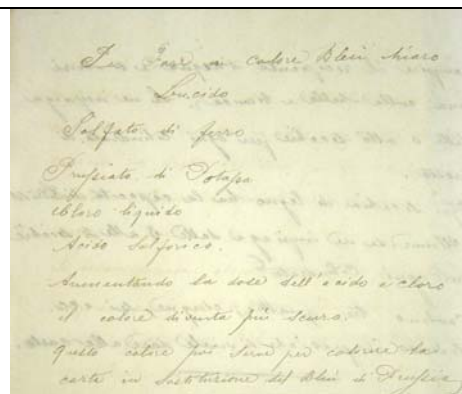 Per Fare un colore Bleu chiaro
Loucido
Solfato di ferro
Prussiato di Potassa
Cloro liquido
Acido Solforico.
Aumentando la dose dell'acido e cloro
il colore diventa più scuro.
Questo colore poi serve per colorire la
carta in sostituzione del Bleu di Prussia